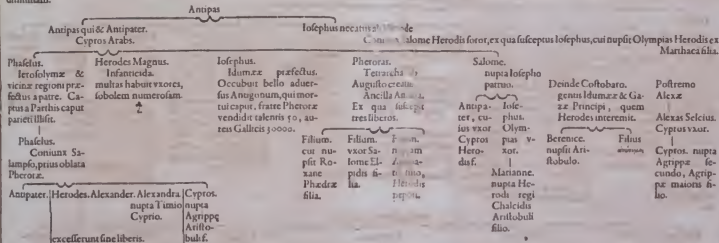 Antipas
Antipas qui & Antipater.
Cypros Arabs.
Iosephus necatus ab Herode
Coniunx Salome Herodis soror, ex qua susceptus Iosephus, cui nupsit Olympias Herodis ex
Marthaca filia.
Phaselus.
Ierosolymæ &
vicinæ regioni præ-
fectus a patre. Ca-
ptus a Parthis caput
parieti illisit.
Phaselus.
Coniunx Sa-
lampso, prius oblata
Pheroræ.
Herodes Magnus.
Infanticida.
multas habuit vxores,
sobolem numerosam.
Iosephus.
Idumææ præfectus.
Occubuit bello aduer-
sus Antigonum, qui mor-
tui caput, fratre Pheroræ
vendidit talentis 50, au-
reis Gallicis 30000.
Pheroras.
Tetrarcha
Augusto creatus
Ancilla
Ex qua suscepit
tres liberos.
Filium.
cui nu-
psit Ro-
xane
Phædræ
filia.
Filium.
vxor Sa-
lome El-
pidis fi-
lia.
Herodis
Salome.
nupta Iosepho
patruo.
Antipa-
ter, cu-
ius vxor
Cypros
Hero-
dis f.
Iose-
phus.
Olym-
pias v-
xor.
Marianne.
nupta He-
rodi regi
Chalcidis
Aristobuli
filio.
Deinde Costobaro.
gentis Idumææ & Ga-
zæ Principi, quem
Herodes interemit.
Berenice.
nupsit Ari-
stobulo.
Filius
Postremo
Alexæ
Alexas Selcius.
Cyprus vxor.
Cypros. nupta
Agrippæ se-
cundo, Agrip-
pæ maioris fi-
lio.
Antipater.
Herodes.
Alexander.
Alexandra
nupta Timio
Cyprio.
Cypros.
nupta
Agrippę
Aristo-
buli f.
excesserunt sine liberis.